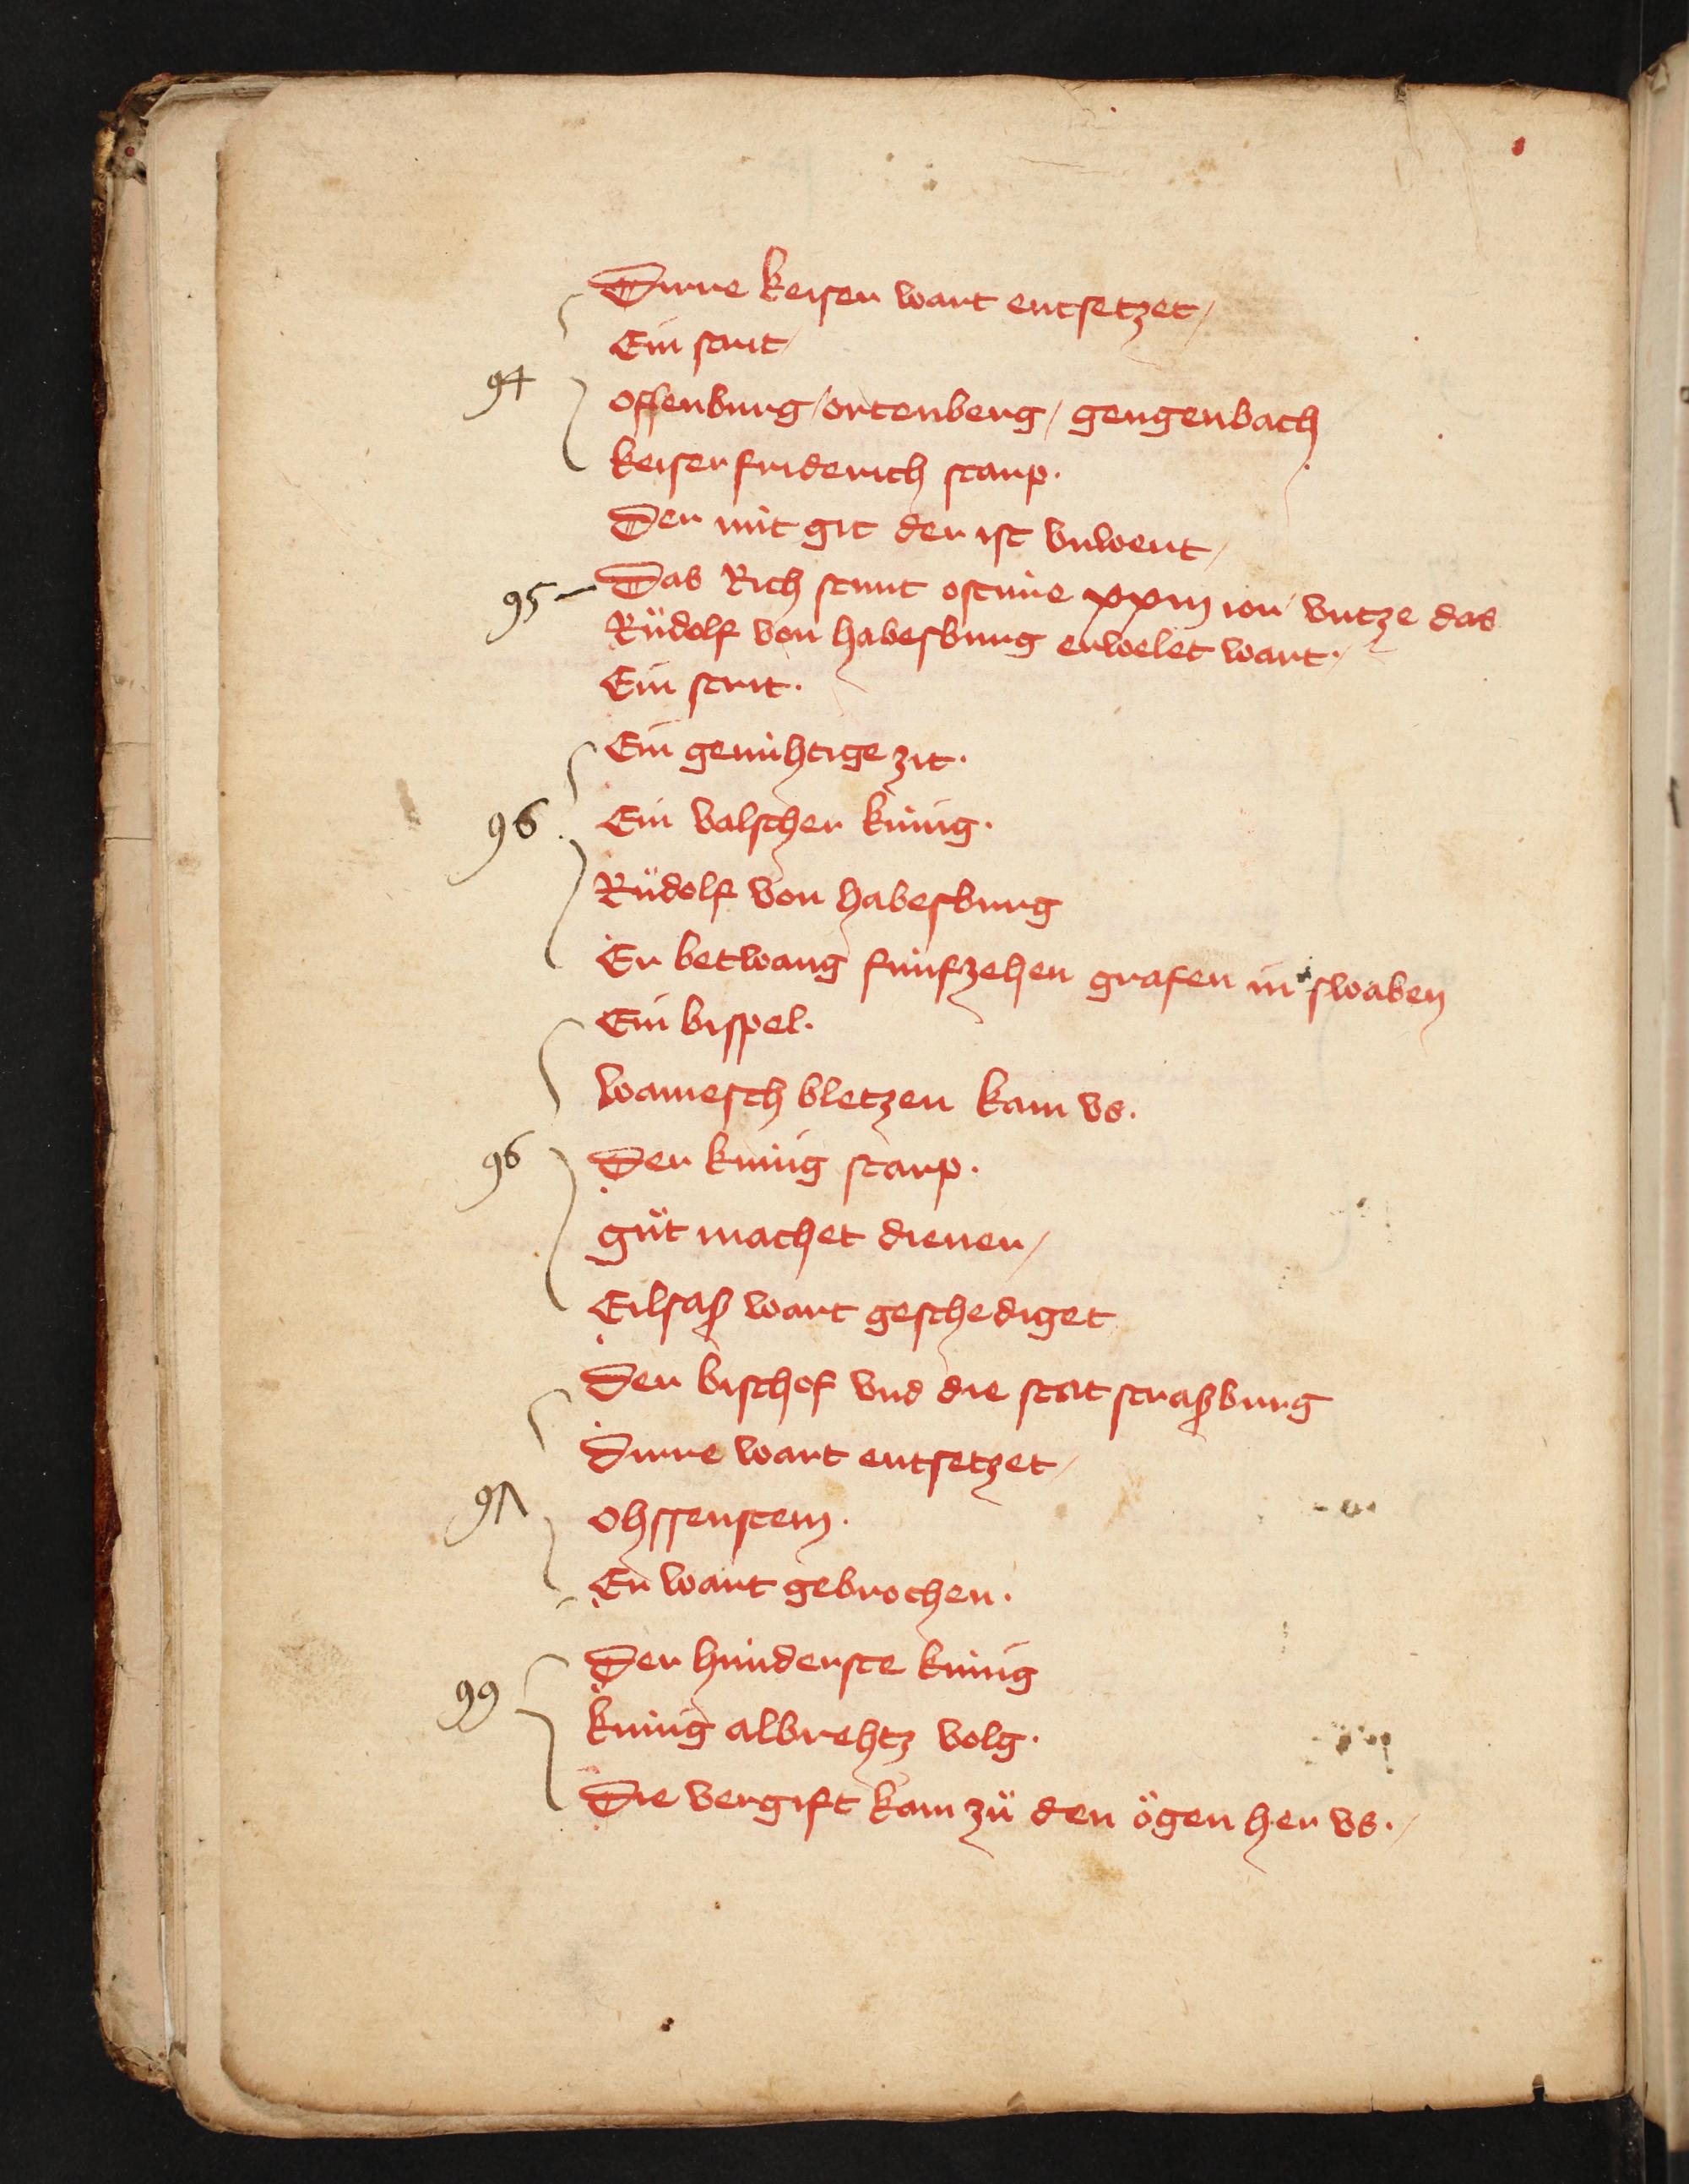 Dirre keiser wart entsetzet /
Ein strit /
94
offenburg / ortenberg / gengenbach
keiser friderich starp.
Der nüt git der ist vnwert /
95 Das Rich stunt ostüre xxiij ior vntze das
Rüdolf von habesburg erwelet wart. /
Ein strit.
Ein genühtige zit.
96 Ein valscher künig.
Rüdolf von habesburg
Er betwang fünfzehen grafen in swaben
Ein bispel.
wamesch bletzen kam vs.
96 Der künig starp.
güt machet diener /
Eilsaß wart geschediget
Der bischof vnd die stat straßburg
Dirre wart entsetzet /
97 ohssenstein.
Er wart gebrochen.
Der hünderste künig
99
künig albrehtz volg.
Die vergift kam zü den ögen her vs. /